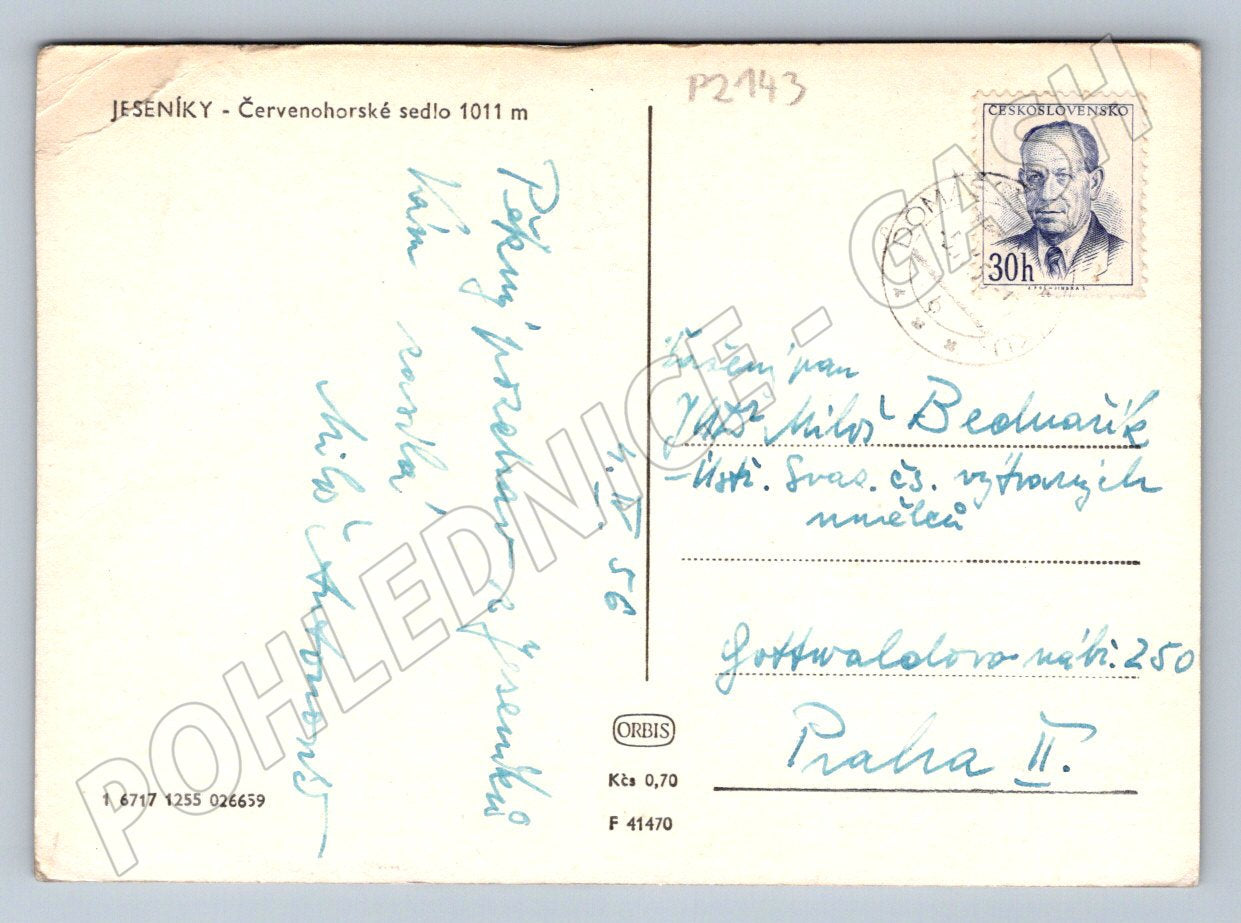 JESENÍKY - Červenohorské sedlo 1011 m
P2143
ČESKOSLOVENSKO
30h
Pěkný pozdrav z Jeseníků
Vám zasílá
Miloš
4. IV 56
Vážený pan
JUDr Miloš Bednařík
-Ústř. Svaz. čs. výtvarných
umělců
Gottwaldovo nábř. 250
Praha II.
ORBIS
Kčs 0,70
F 41470
1 6717 1255 026659
POHLEDNICE - GASH